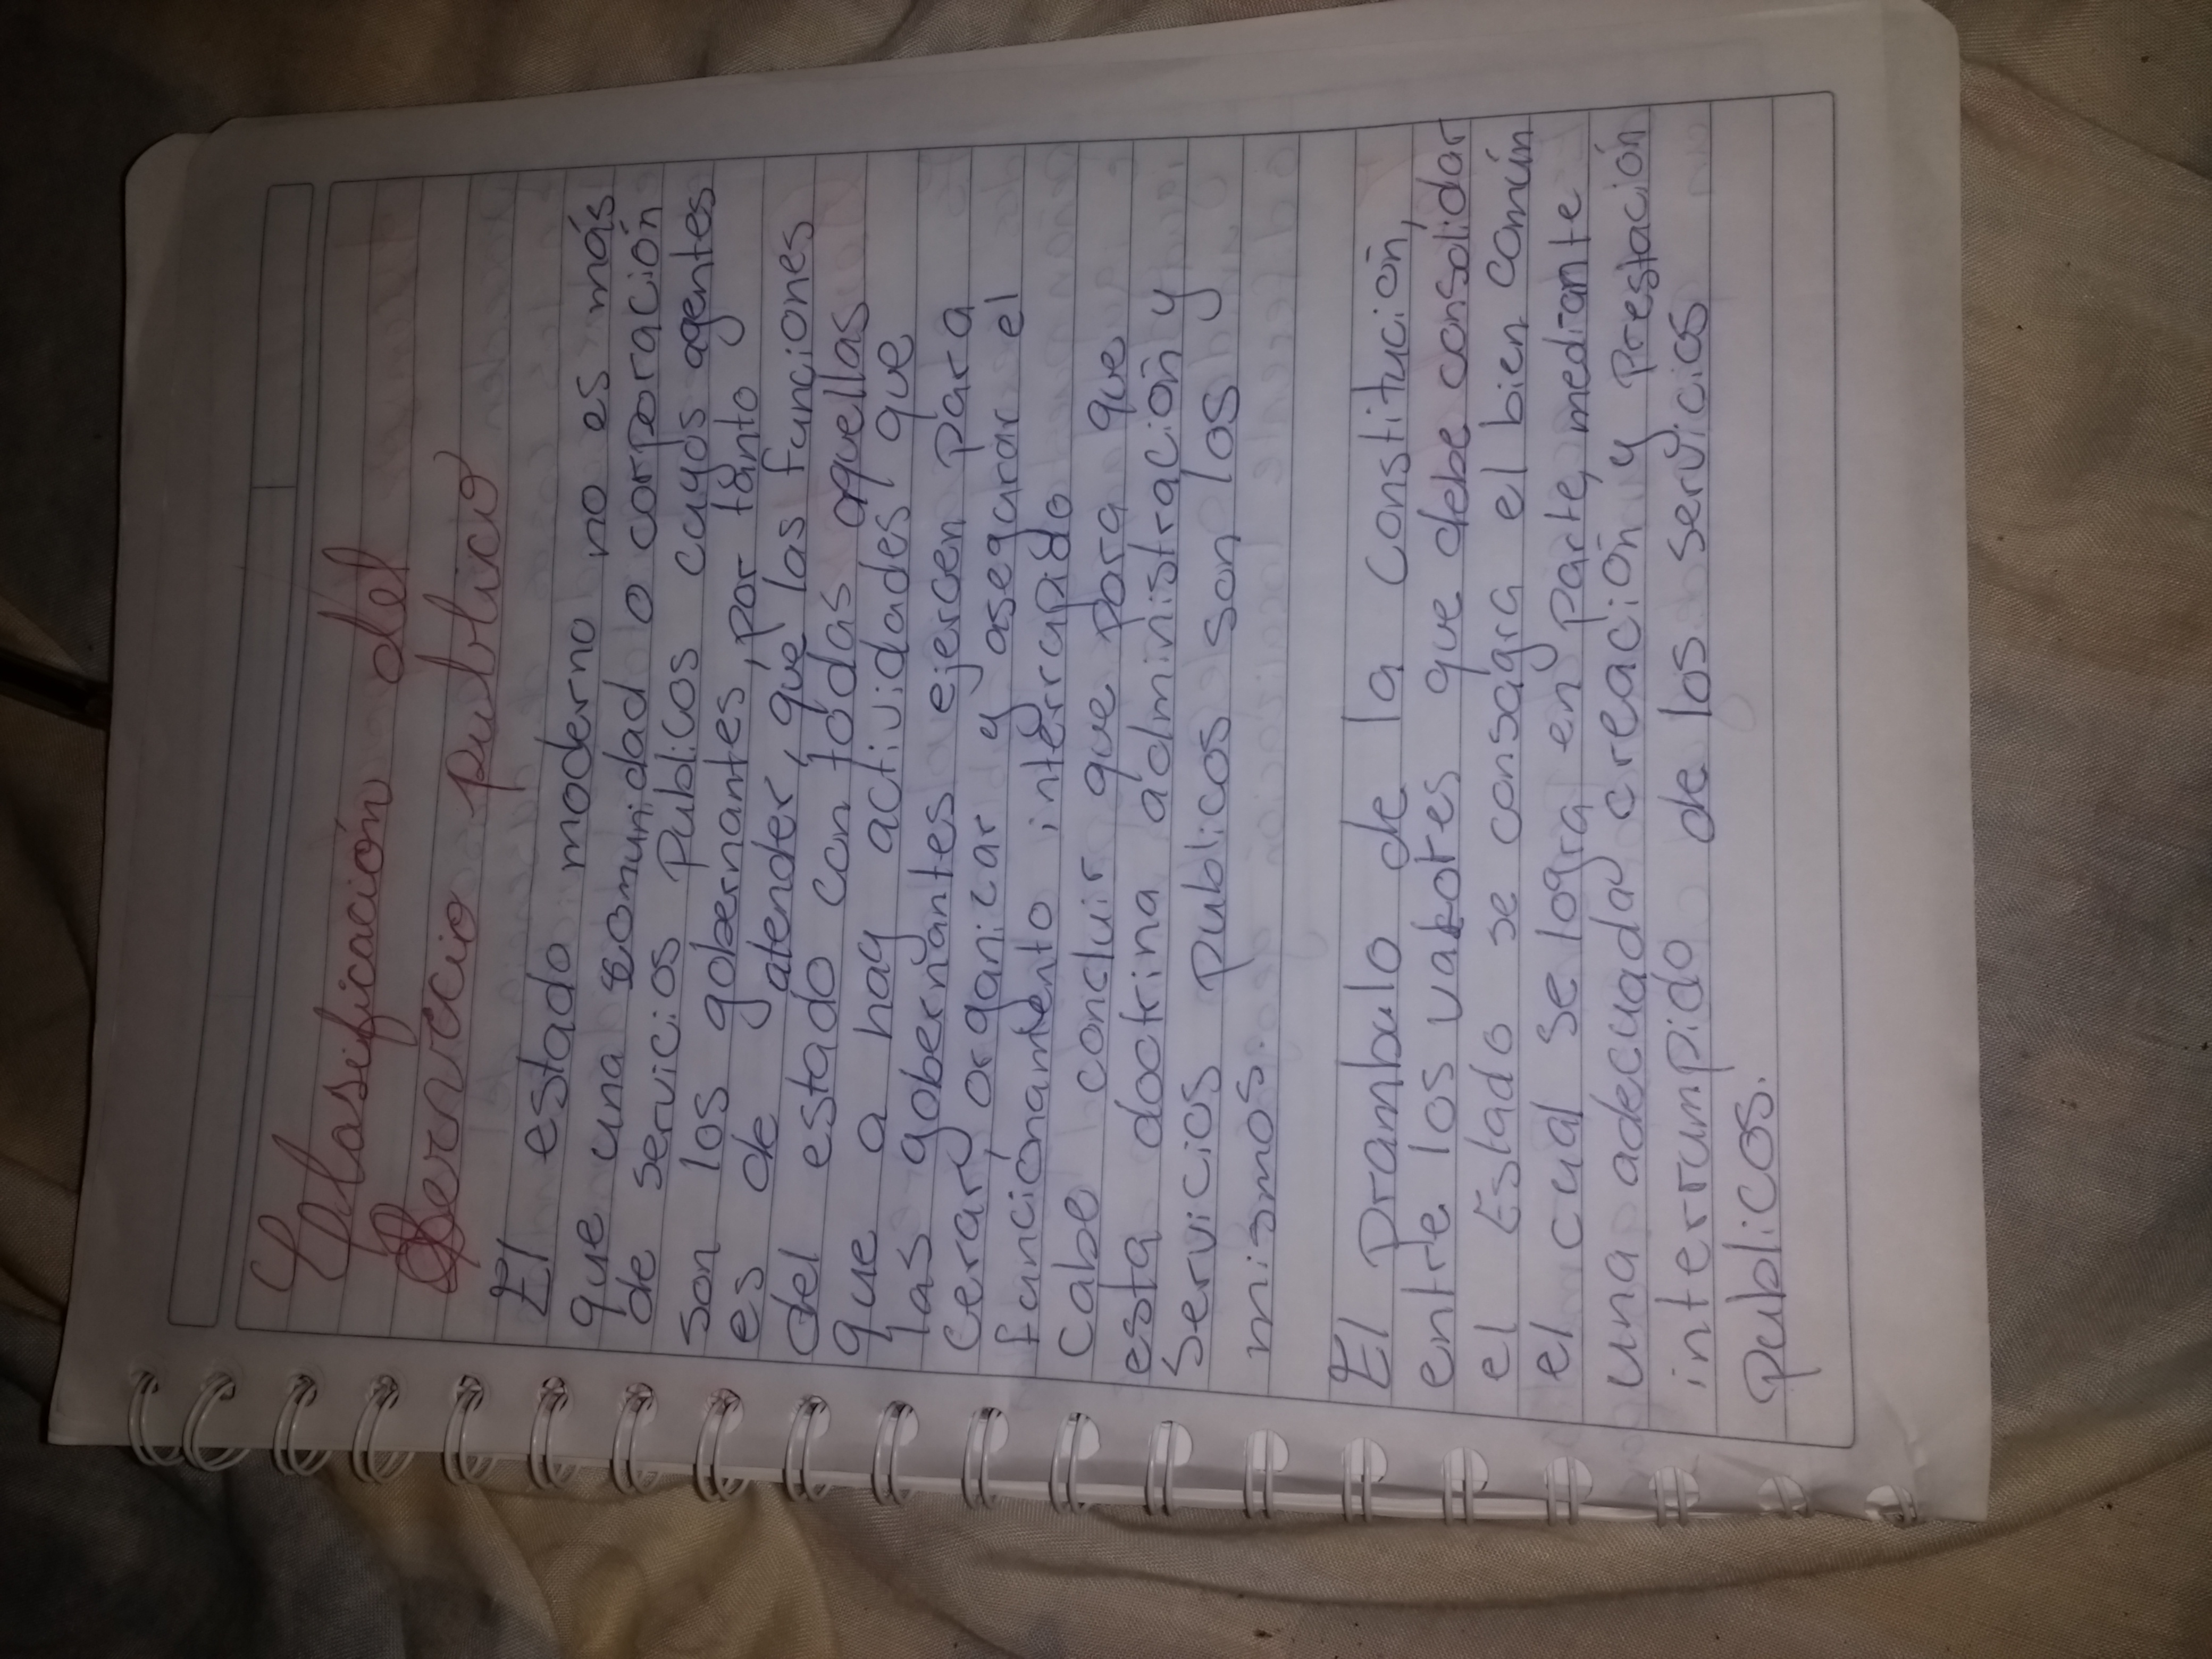 Clasificación del
Servicio publico
El estado moderno no es más
que una comunidad o corporación
de servicios Publicos cuyos agentes
son los gobernantes, por tanto
es de atender, que las funciones
del estado con todas aquellas
que a hay actividades que
las gobernantes ejercen para
cerar, organicar y asegurar el
funcionamiento interrumpido
Cabe concluir que para que
esta doctrina administración y
Servicios publicos son los
mismos.
El Prambulo de la constitución,
entre los valores que debe consolidar
el Estado se conságra el bien común
el cual se logra en parte, mediante
una adecuada creación y Prestación
interrumpido de los servicios
Publicos.